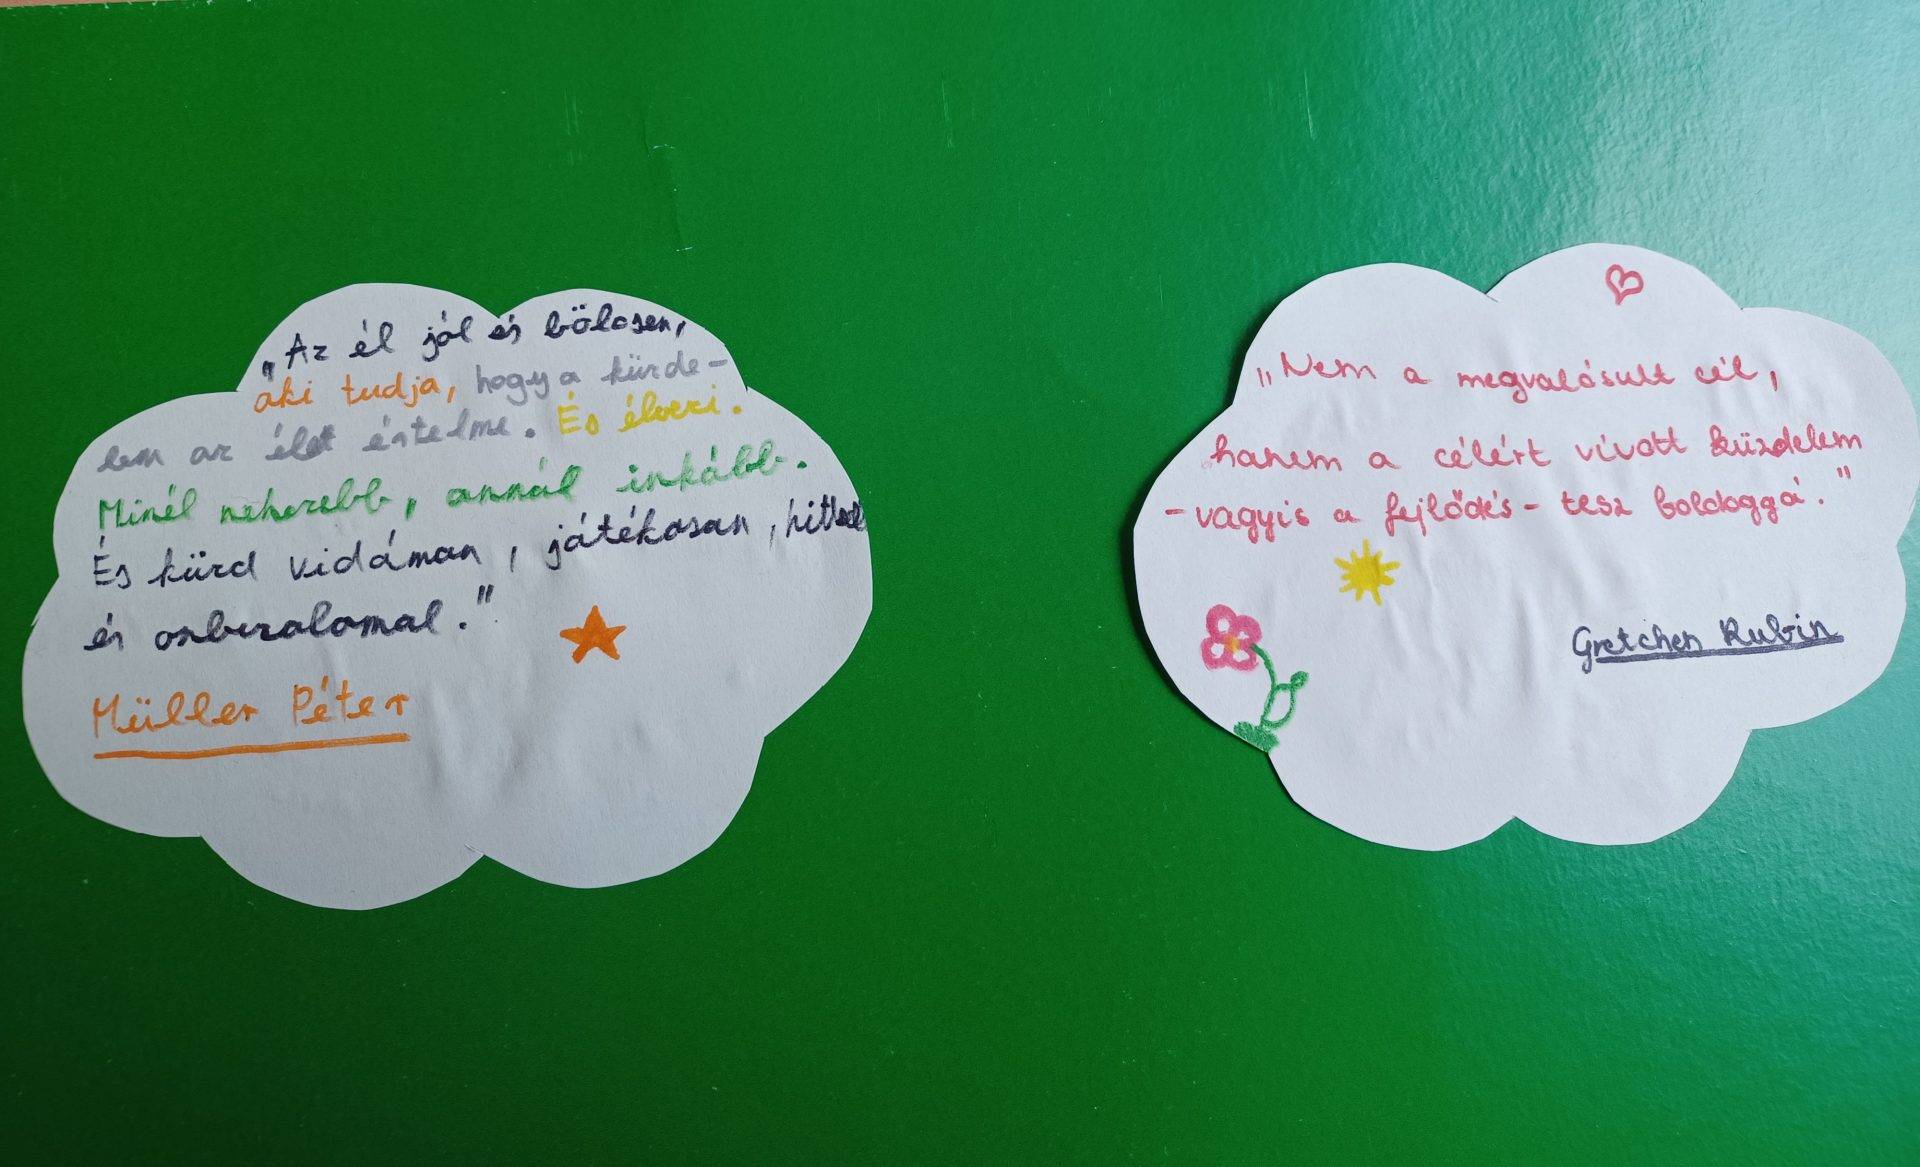 „Az él jól és bölcsen,
aki tudja, hogy a küzde-
lem az élet értelme. És élvezi.
Minél nehezebb, annál inkább.
És küzd vidáman, játékosan, hittel
és önbizalomal."
Müller Péter
„Nem a megvalósult cél,
hanem a célért vívott küzdelem
- vagyis a fejlődés - tesz boldoggá."
Gretchen Rubin